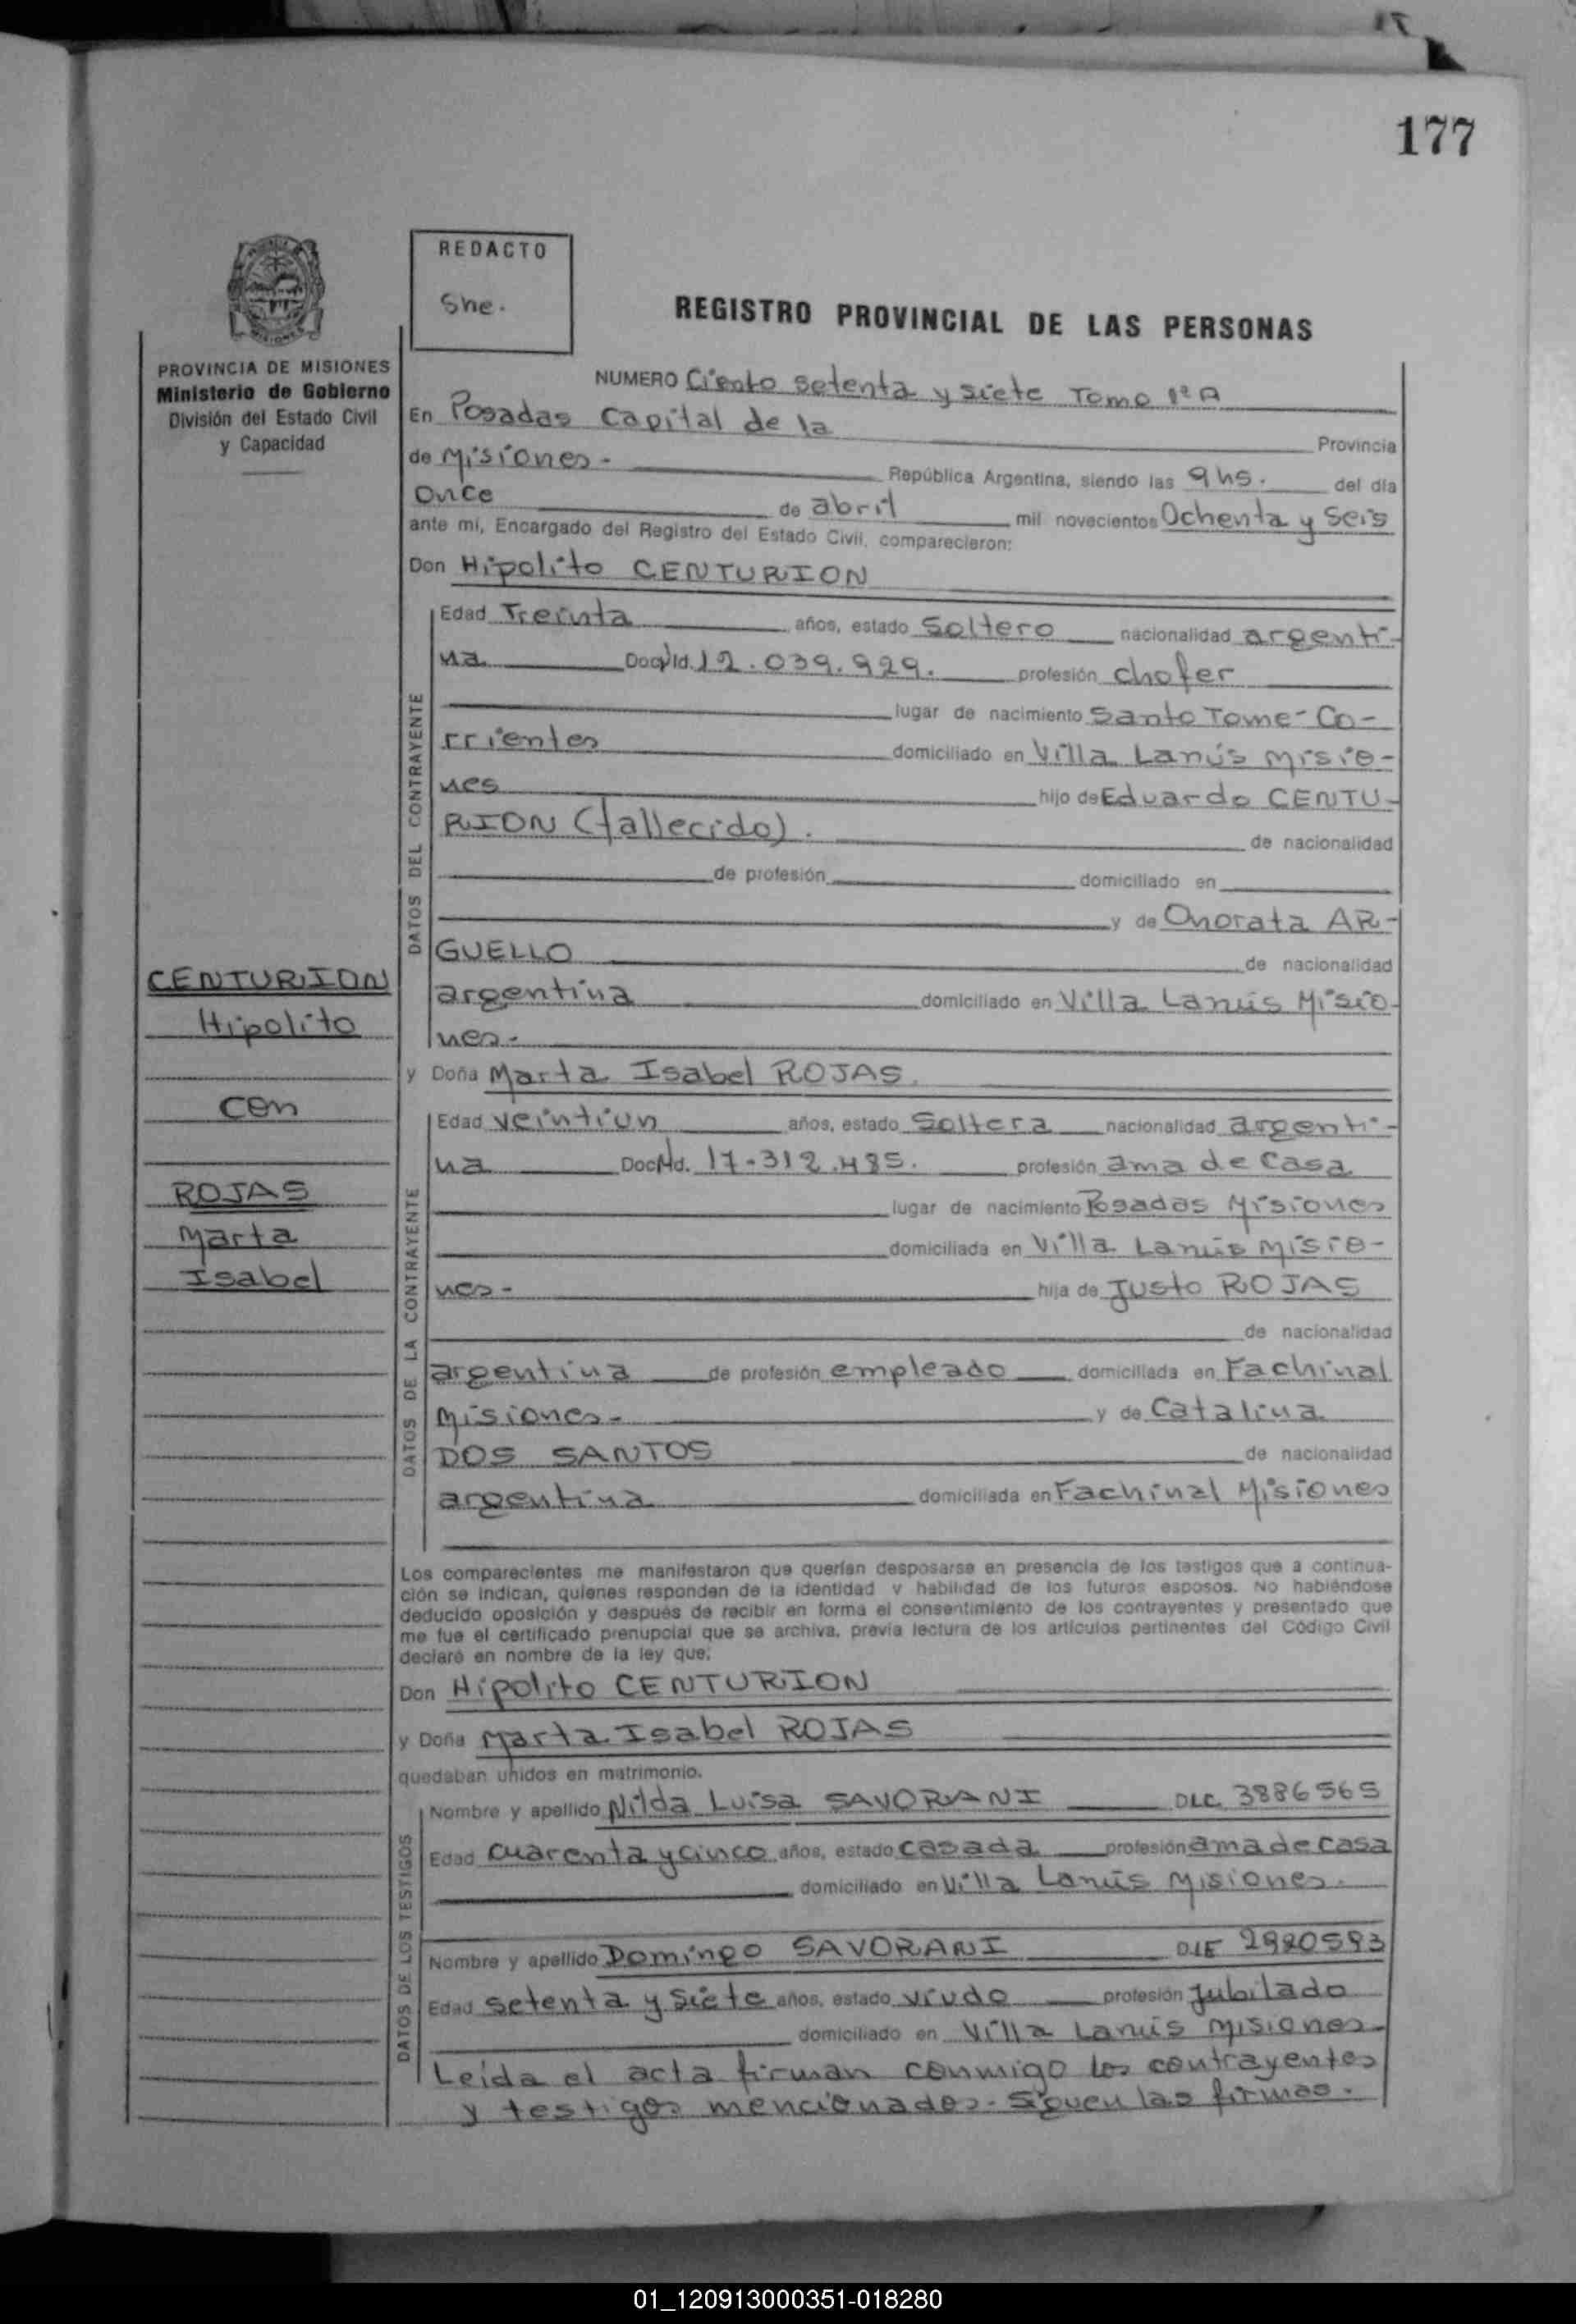 177
REDACTO
She.
REGISTRO PROVINCIAL DE LAS PERSONAS
PROVINCIA DE MISIONES
Ministerio de Gobierno
División del Estado Civil
y Capacidad
NUMERO Ciento setenta y siete Tomo 1º A
En Posadas Capital de la Provincia
de Misiones - República Argentina, siendo las 9 hs. del día
Once de abril mil novecientos Ochenta y Seis
ante mí, Encargado del Registro del Estado Civil, comparecieron:
Don Hipolito CENTURION
DATOS DEL CONTRAYENTE
Edad Treinta años, estado Soltero nacionalidad argenti-
na Doc. Id. 12.039.929. profesión chofer
lugar de nacimiento Santo Tome - Co-
rrientes domiciliado en Villa Lanús Misio-
nes hijo de Eduardo CENTU-
RION (fallecido). de nacionalidad
de profesión domiciliado en
y de Onorata AR-
GUELLO de nacionalidad
argentina domiciliado en Villa Lanús Misio-
nes-
CENTURION
Hipolito
con
ROJAS
Marta
Isabel
y Doña Marta Isabel ROJAS.
DATOS DE LA CONTRAYENTE
Edad veintiun años, estado Soltera nacionalidad argenti-
na Doc. Id. 17-312.485. profesión ama de casa
lugar de nacimiento Posadas Misiones
domiciliada en Villa Lanús Misio-
nes- hija de Justo ROJAS
de nacionalidad
argentina de profesión empleado domiciliada en Fachinal
Misiones- y de Catalina
DOS SANTOS de nacionalidad
argentina domiciliada en Fachinal Misiones
Los comparecientes me manifestaron que querían desposarse en presencia de los testigos que a continua-
ción se indican, quienes responden de la identidad y habilidad de los futuros esposos. No habiéndose
deducido oposición y después de recibir en forma el consentimiento de los contrayentes y presentado que
me fue el certificado prenupcial que se archiva, previa lectura de los artículos pertinentes del Código Civil
declaré en nombre de la ley que:
Don Hipolito CENTURION
y Doña Marta Isabel ROJAS
quedaban unidos en matrimonio.
DATOS DE LOS TESTIGOS
Nombre y apellido Nilda Luisa SAVORANI DLC. 3886565
Edad cuarenta y cinco años, estado casada profesión ama de casa
domiciliado en Villa Lanús Misiones.
Nombre y apellido Domingo SAVORANI DLE 2980593
Edad setenta y siete años, estado viudo profesión jubilado
domiciliado en Villa Lanús Misiones-
Leída el acta firman conmigo los contrayentes
y testigos mencionados - Siguen las firmas.
01_120913000351-018280